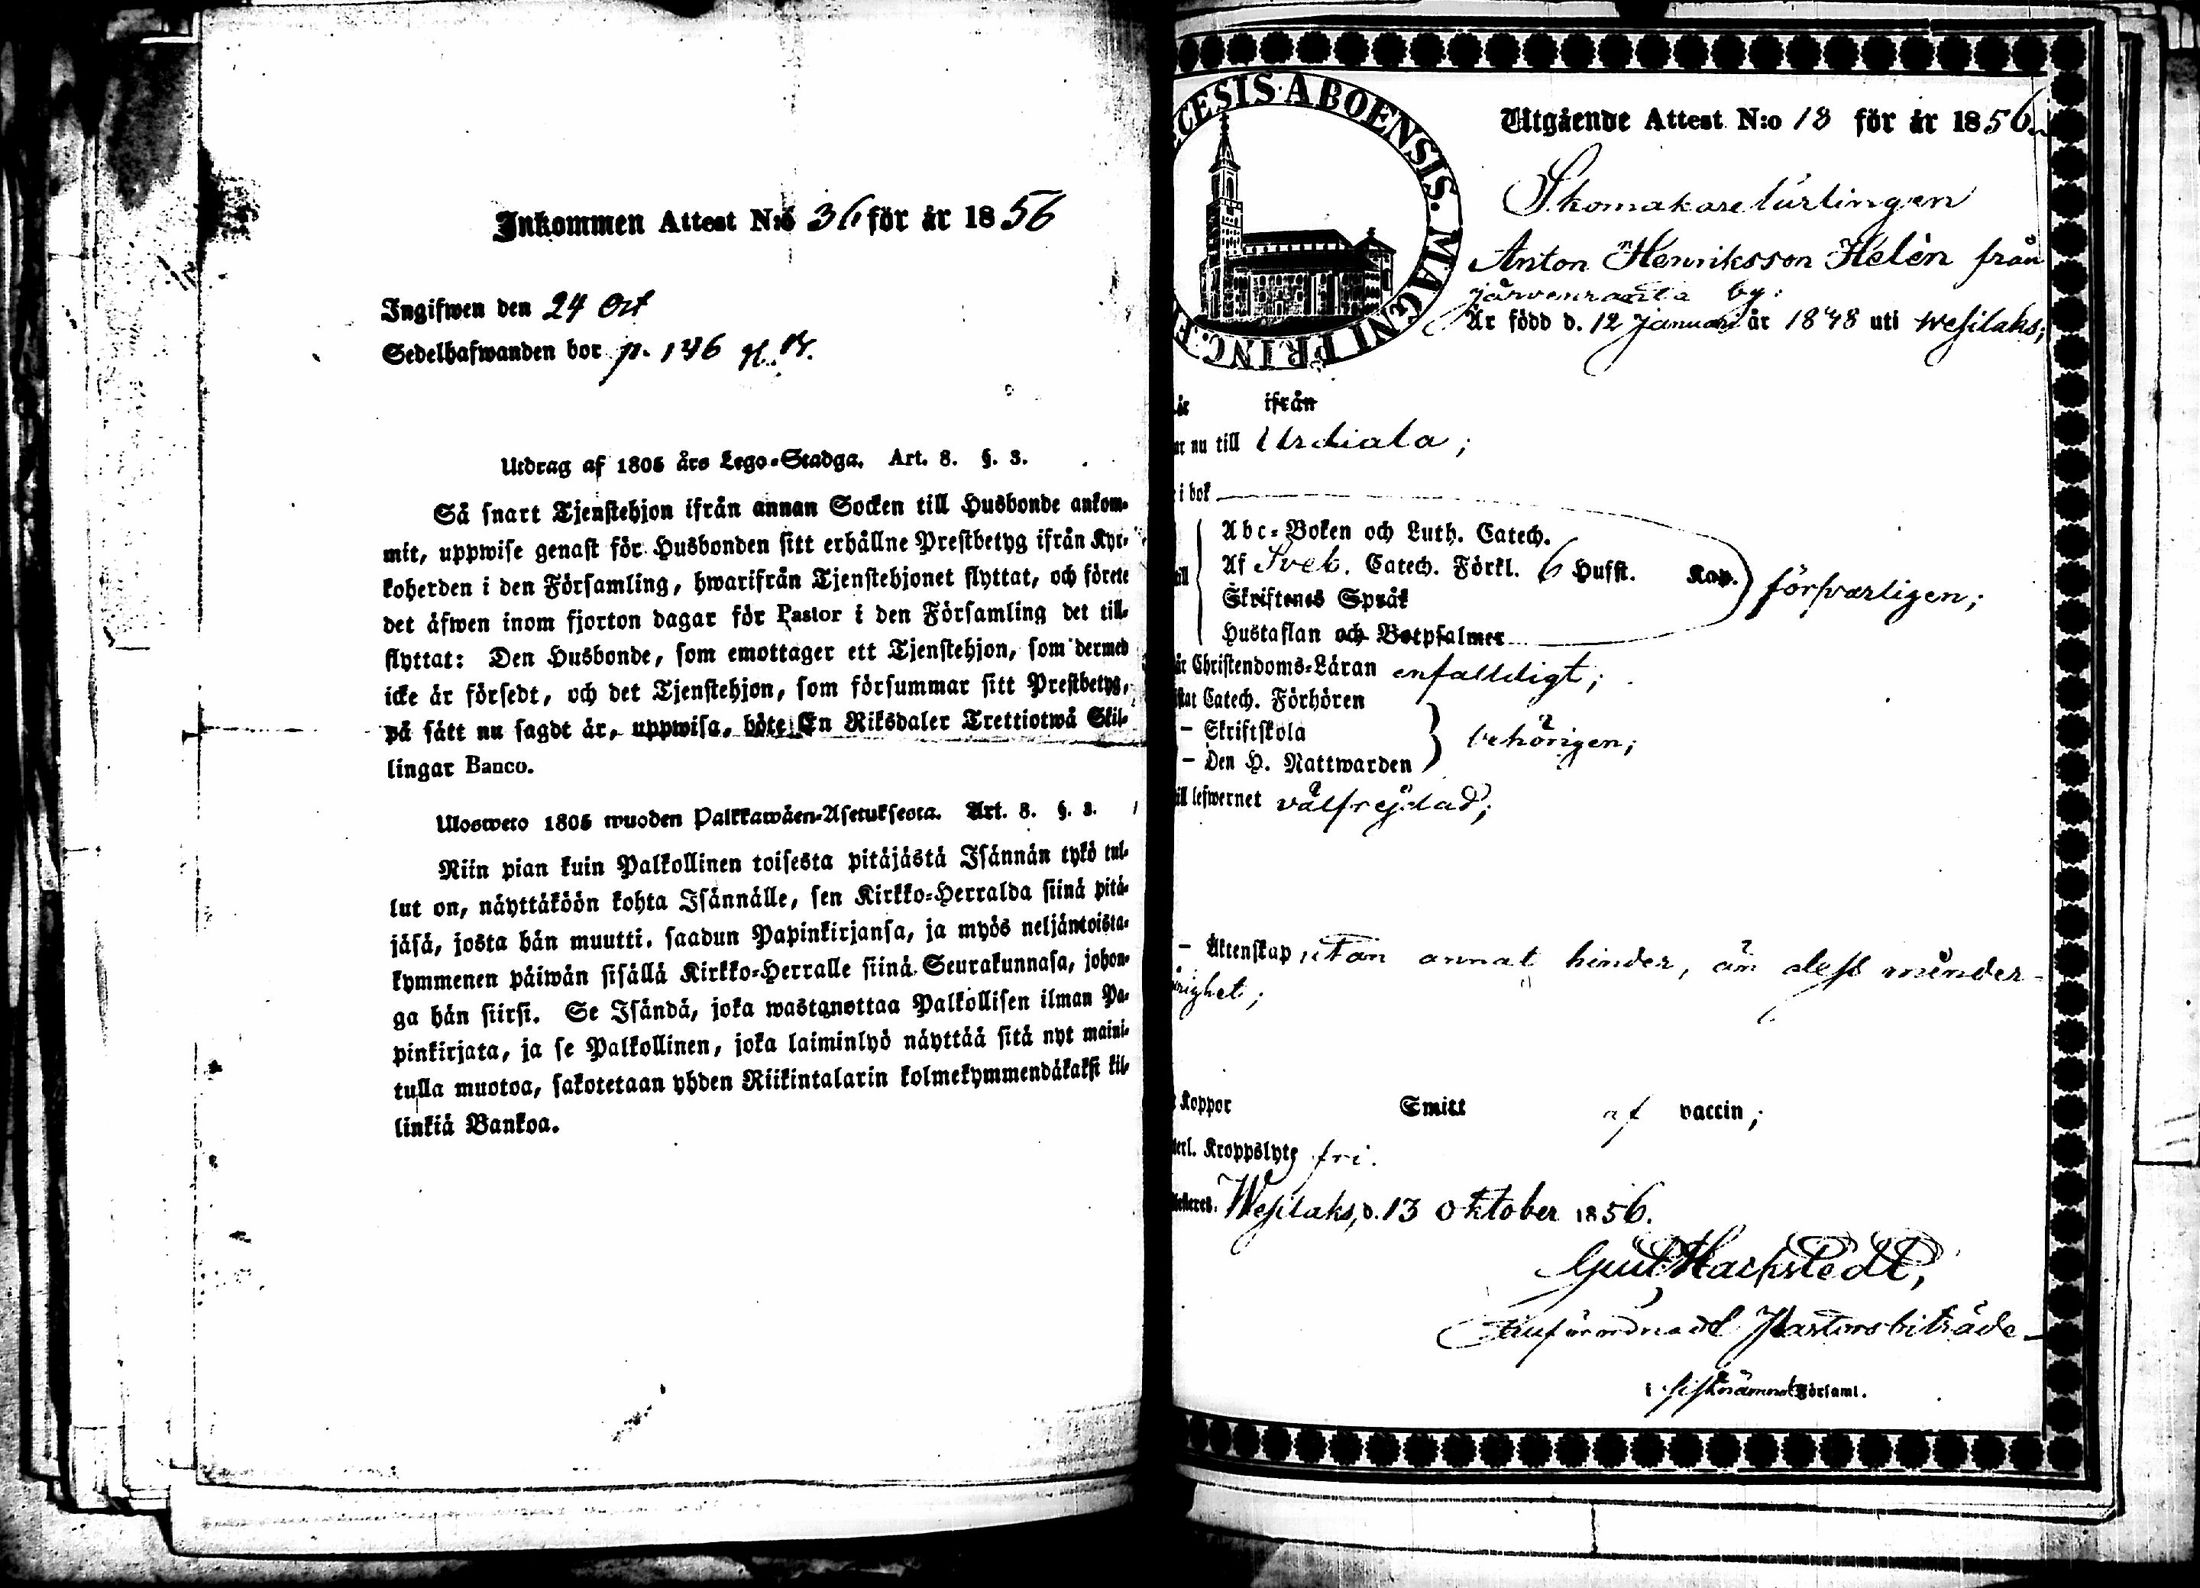 Inkommen Attest N:o 36 för år 1856
Ingifwen den 24 Oct
Sedelhafwanden bor p. 136
Utdrag af 1805 års Lego-Stadga. Art. 8. §. 3.
Så snart Tjenstehjon ifrån annan Socken till Husbonde ankom-
mit, uppwise genast för Husbonden sitt erhållne Prestbetyg ifrån Kyr-
koherden i den Församling, hwarifrån Tjenstehjonet flyttat, och förete
det äfwen inom fjorton dagar för Pastor i den Församling det till-
flyttat: Den Husbonde, som emottager ett Tjenstehjon, som dermed
icke är försedt, och det Tjenstehjon, som försummar sitt Prestbetyg,
på sätt nu sagdt är, uppwisa, böte En Riksdaler Trettiotwå Skil-
lingar Banco.
Ulosweto 1805 wuoden Palkkawäen-Asetuksesta. Art. 8. §. 3.
Niin pian kuin Palkollinen toisesta pitäjästä Isännän tykö tul-
lut on, näyttäköön kohta Isännälle, sen Kirkko-Herralda siinä pitä-
jäsä, josta hän muutti, saadun Papinkirjansa, ja myös neljäntoista-
kymmenen päiwän sisällä Kirkko-Herralle siinä Seurakunnasa, johon-
ga hän siirsi. Se Isändä, joka wastanottaa Palkollisen ilman Pa-
pinkirjata, ja se Palkollinen, joka laiminlyö näyttää sitä nyt maini-
tulla muotoa, sakotetaan yhden Riikintalarin kolmekymmendäkaksi kil-
linkiä Bankoa.
CESIS ABOENSIS. MAGNI PRINC. F
Utgående Attest N:o 18 för år 1856
Skomakarelärlingen
Anton Henriksson Helén från
Järvenranta by:
Är född d. 12 Januari år 1848 uti Wesilaks;
år ifrån
nu till Urdiala;
i bok
Abc-Boken och Luth. Catech.
Af Sveb. Catech. Förkl. 6 Hufst. Kap. försvarligen;
Skriftenes Språk
Hustaflan och Botpsalmer
Christendoms-Läran enfaldigt;
Catech. Förhören
– Skriftskola behörigen;
– Den H. Nattwarden
lefwernet välfrejdad;
– Äktenskap utan annat hinder, än dess minder-
årighet;
Koppor Smitt af vaccin;
Kroppslyte fri.
Wesilaks, d. 13 Oktober 1856.
Gust Hackstedt,
Pastorsbiträde
i sistnämnde Församl.